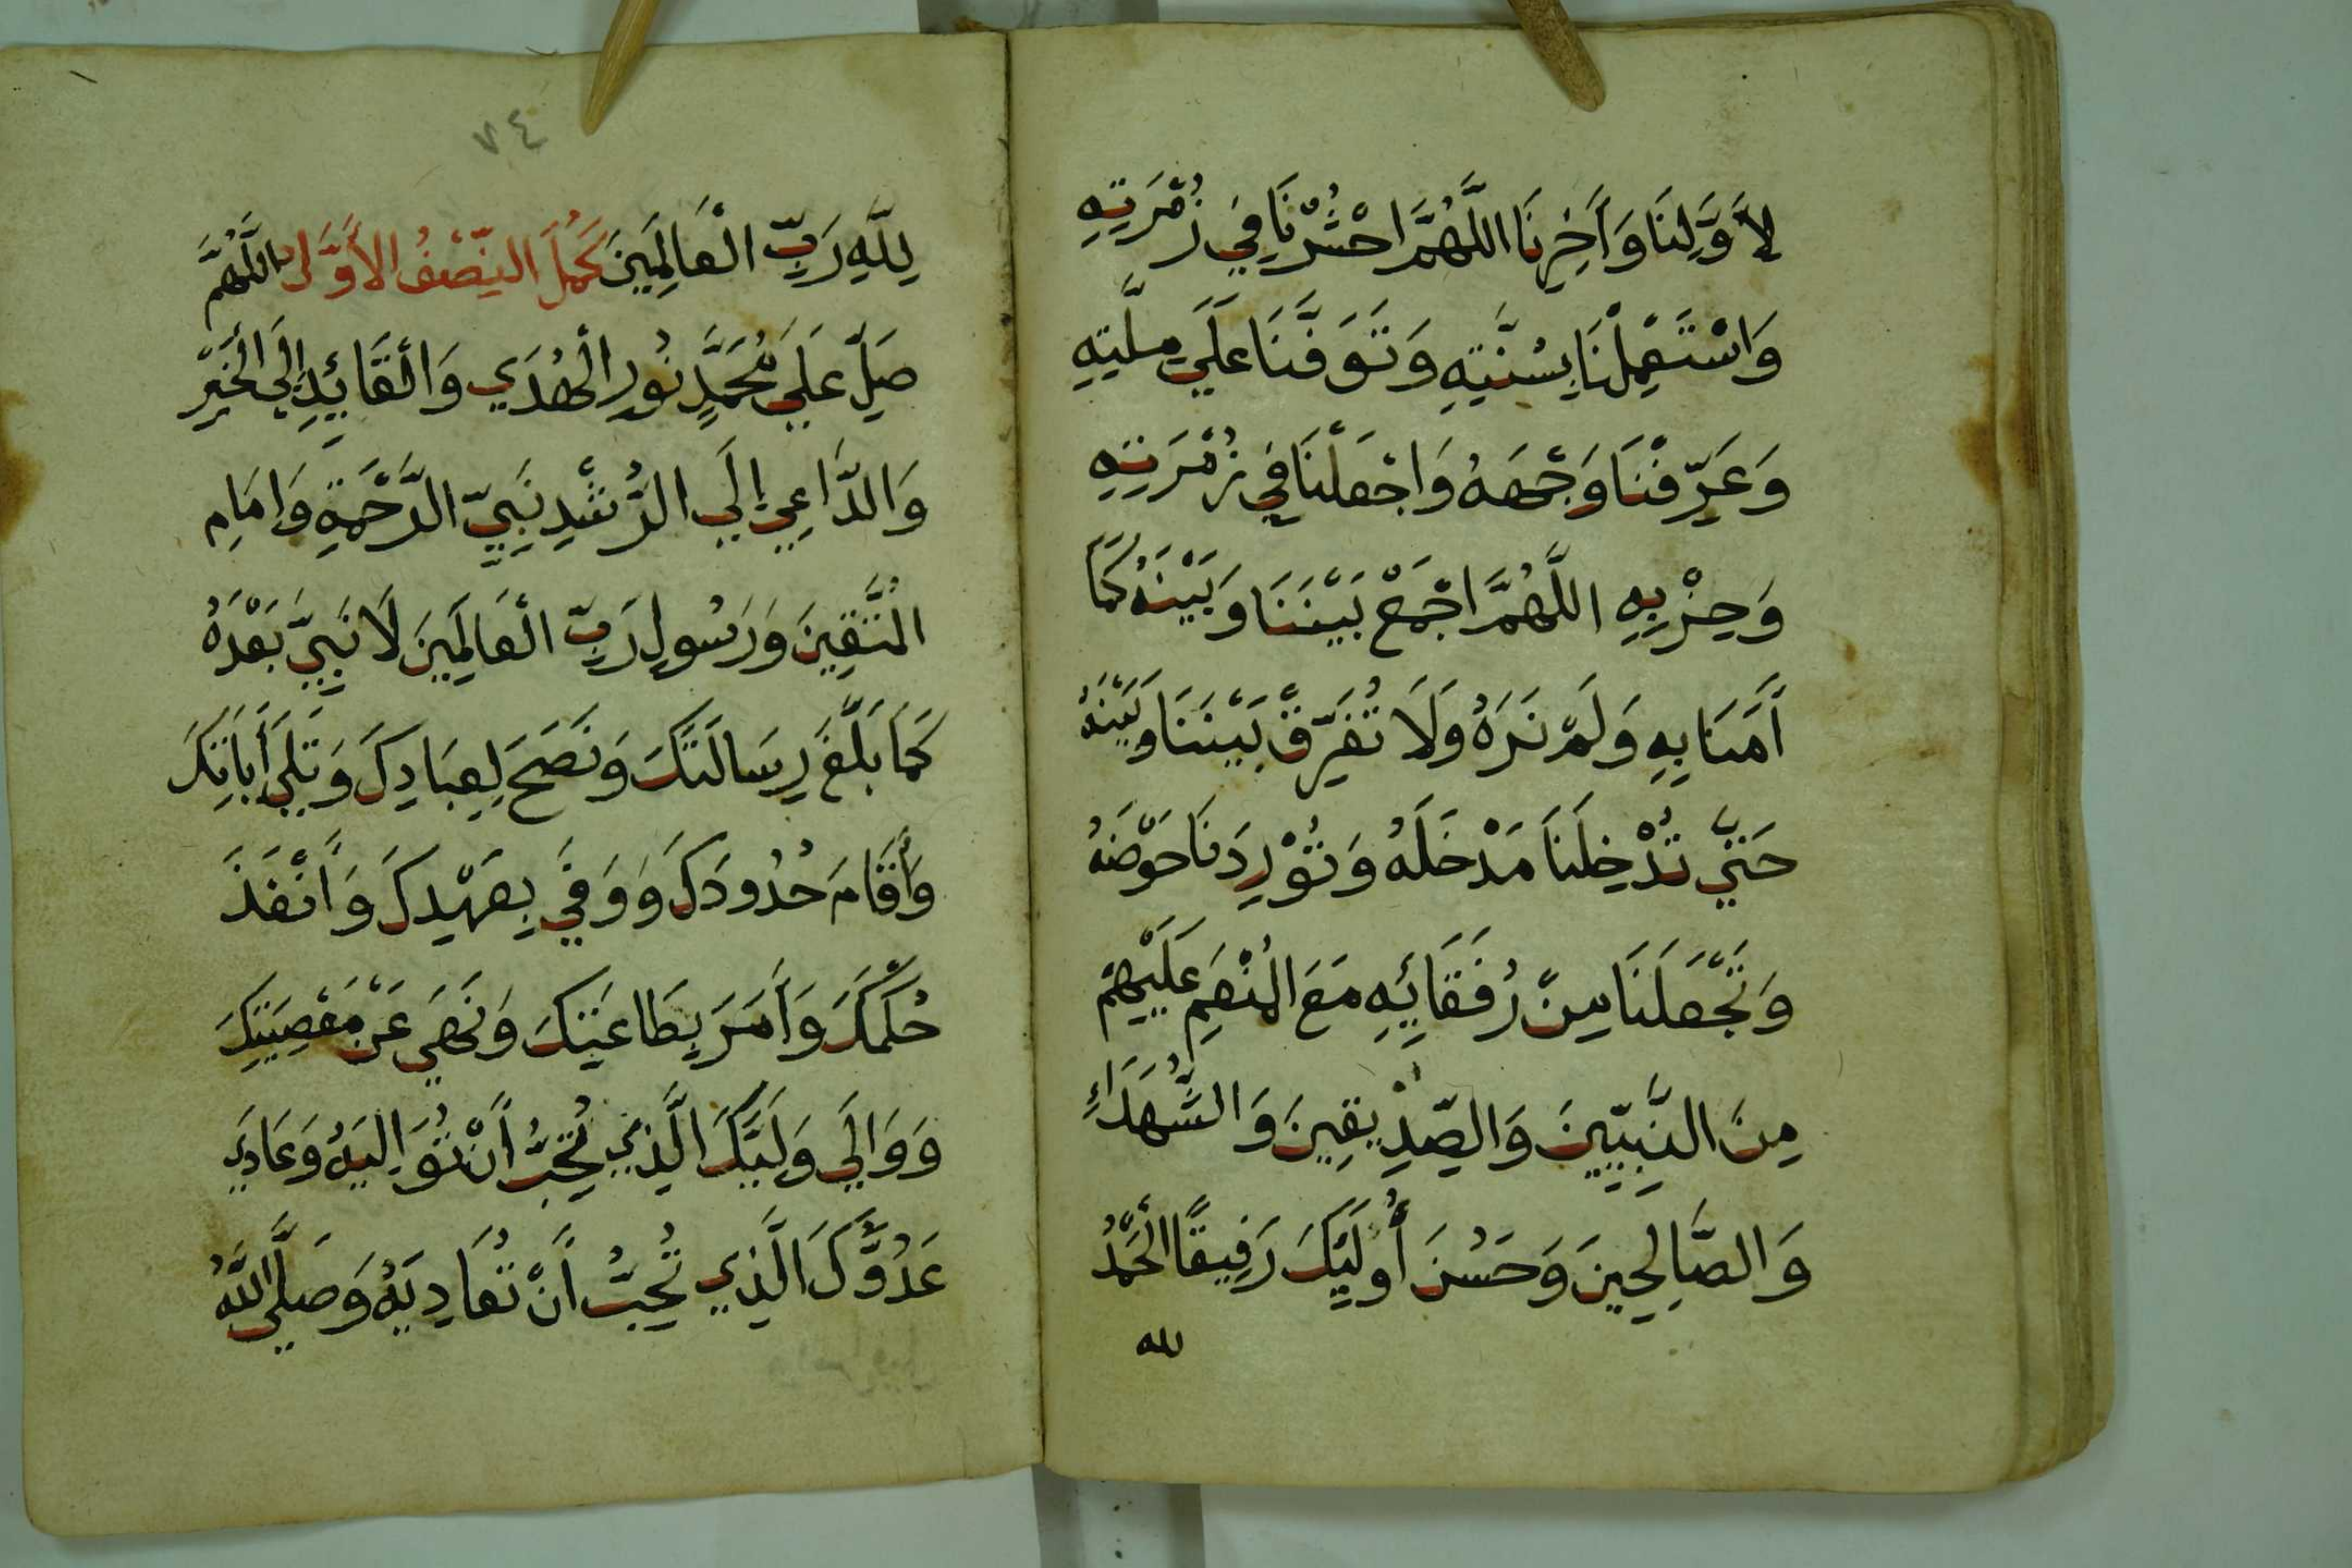 لِأَوَّلِنَا وَأَخِرِنَا اللَّهُمَّ احْشُرْنَا فِي زُمْرَتِهِ
وَاسْتَعْمِلْنَا بِسُنَّتِهِ وَتَوَفَّنَا عَلَي مِلَّتِهِ
وَعَرِّفْنَا وَجْهَهُ وَاجْعَلْنَا فِي زُمْرَتِهِ
وَحِزْبِهِ اللَّهُمَّ اجْمَعْ بَيْنَنَا وَبَيْنَهُ كَمَا
أَمَنَا بِهِ وَلَمْ نَرَهُ وَلَا تُفَرِّقْ بَيْنَنَا وَبَيْنَهُ
حَتَّي تُدْخِلَنَا مَدْخَلَهُ وَتُوْرِدَنَا حَوْضَهُ
وَتَجْعَلَنَا مِنْ رُفَقَائِهِ مَعَ الْمُنْعَمِ عَلَيْهِمْ
مِنَ النَّبِيِّينَ وَالصِّدِّيقِينَ وَالشُّهَدَاءِ
وَالصَّالِحِينَ وَحَسُنَ أُولَئِكَ رَفِيقًا الْحَمْدُ
لله
٧٤
لِلَّهِ رَبِّ الْعَالَمِينَ كَمُلَ النِّصْفُ الأَوَّلُ اللَّهُمَّ
صَلِّ عَلَي مُحَمَّدٍ نُورِ الْهُدَي وَالْقَائِدِ إِلَي الْخَيْرِ
وَالدَّاعِي إِلَي الرُّشْدِ نَبِيِّ الرَّحْمَةِ وَإمَامِ
الْمُتَّقِينَ وَرَسُولِ رَبِّ الْعَالَمِينَ لَا نَبِيَّ بَعْدَهُ
كَمَا بَلَّغَ رِسَالَتَكَ وَنَصَحَ لِعِبَادِكَ وَتَلَي أَيَاتِكَ
وَأَقَامَ حُدُودَكَ وَوَفَي بِعَهْدِكَ وَأَنْفَذَ
حُكْمَكَ وَأَمَرَ بِطَاعَتِكَ وَنَهَي عَنْ مَعْصِيَتِكَ
وَوَالَي وَلِيَّكَ الَّذِي تُحِبُّ أَنْ تُوَالِيَهُ وَعَادَي
عَدُوَّكَ الَّذِي تُحِبُّ أَنْ تُعَادِيَهُ وَصَلَّي اللَّهُ